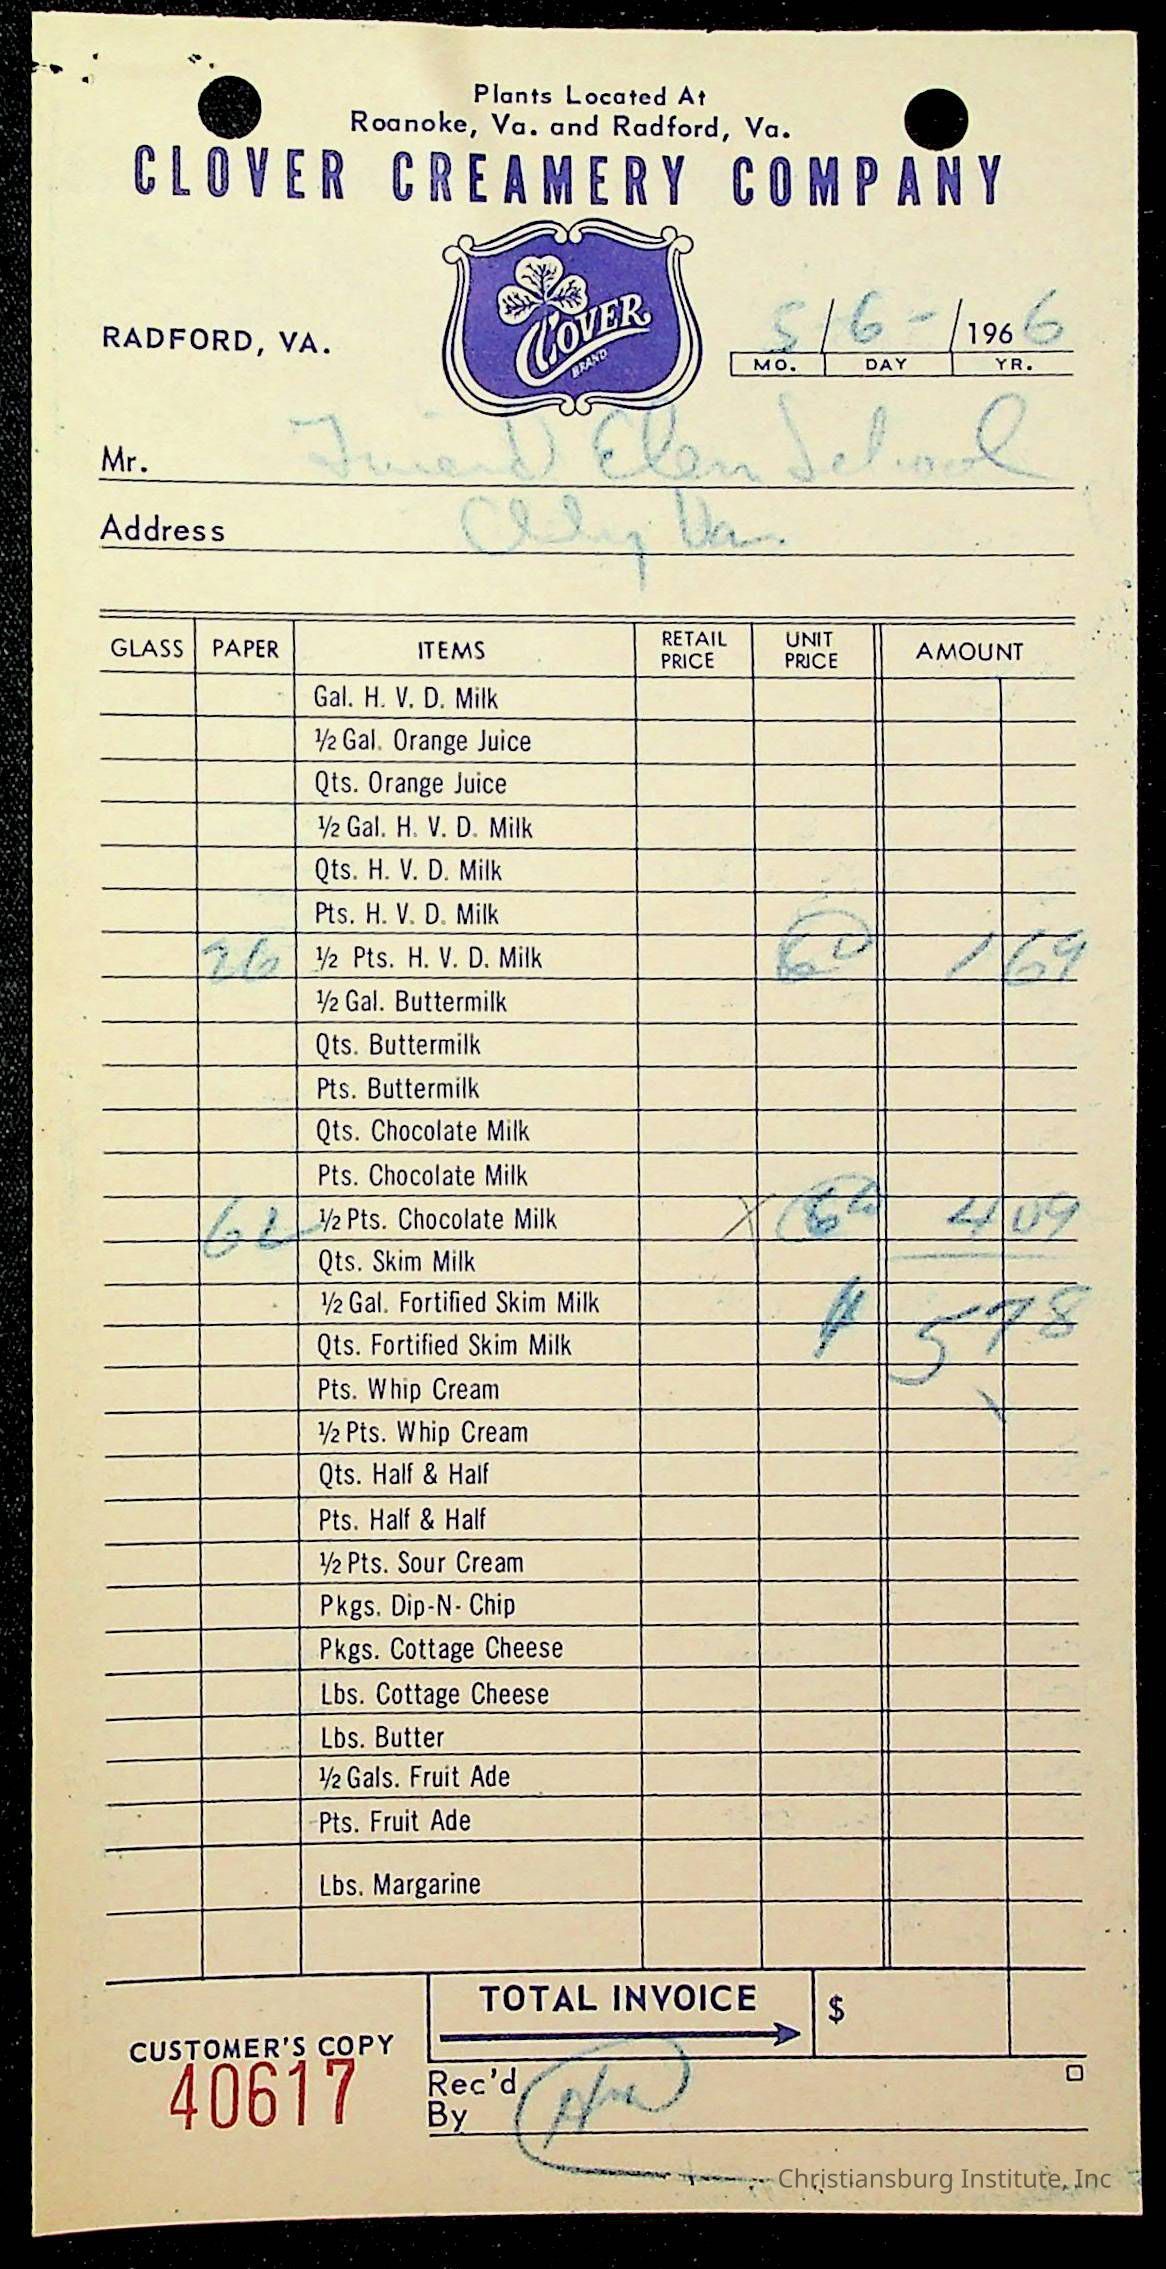 Plants Located At
Roanoke, Va. and Radford, Va.
CLOVER CREAMERY COMPANY
CLOVER
BRAND
RADFORD, VA.
5/6-/1966
MO. DAY YR.
Mr. Friend Elem School
Address Va.
GLASS PAPER ITEMS RETAIL PRICE UNIT PRICE AMOUNT
Gal. H. V. D. Milk
½ Gal. Orange Juice
Qts. Orange Juice
½ Gal. H. V. D. Milk
Qts. H. V. D. Milk
Pts. H. V. D. Milk
26 ½ Pts. H. V. D. Milk 1 69
½ Gal. Buttermilk
Qts. Buttermilk
Pts. Buttermilk
Qts. Chocolate Milk
Pts. Chocolate Milk
62 ½ Pts. Chocolate Milk 4 09
Qts. Skim Milk
½ Gal. Fortified Skim Milk 5 78
Qts. Fortified Skim Milk
Pts. Whip Cream
½ Pts. Whip Cream
Qts. Half & Half
Pts. Half & Half
½ Pts. Sour Cream
Pkgs. Dip-N-Chip
Pkgs. Cottage Cheese
Lbs. Cottage Cheese
Lbs. Butter
½ Gals. Fruit Ade
Pts. Fruit Ade
Lbs. Margarine
TOTAL INVOICE $
CUSTOMER'S COPY
40617
Rec'd
By
Christiansburg Institute, Inc